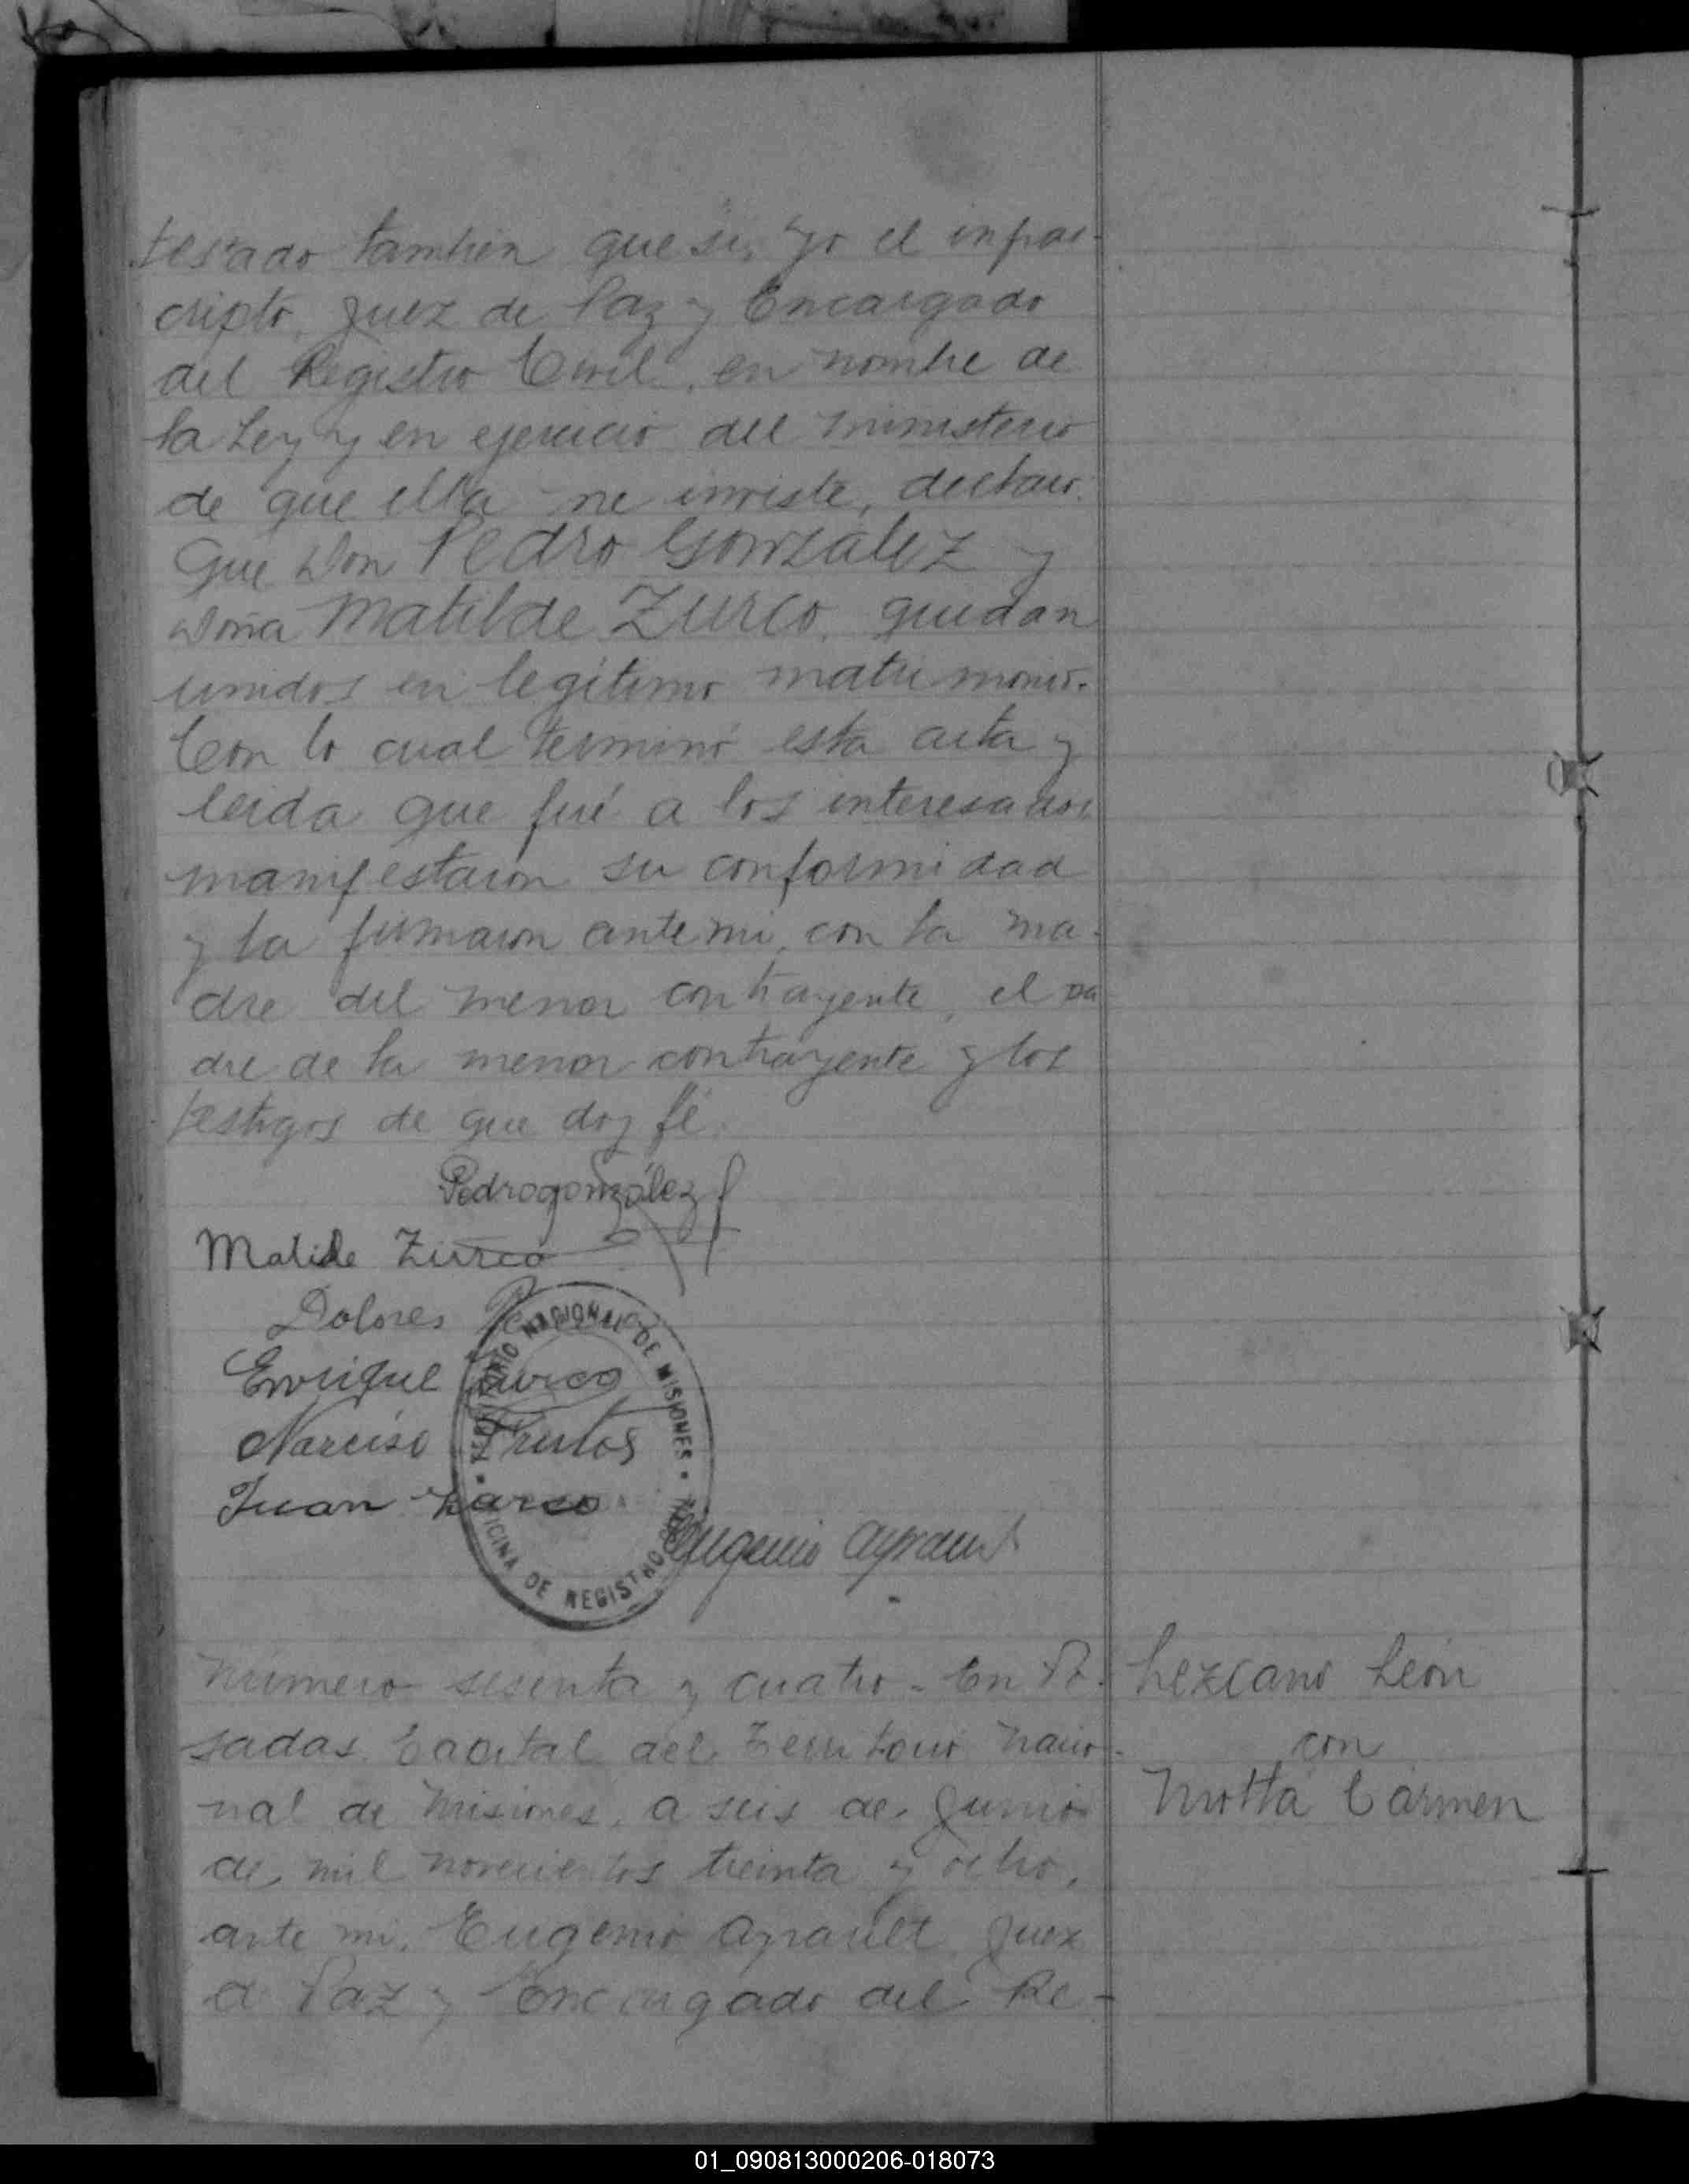 testado tambien que si, yo el infras-
cripto, Juez de Paz y Encargado
del Registro Civil, en nombre de
la Ley y en ejercicio del ministerio
de que ella me inviste, declaro:
Que Don Pedro González y
Doña Matilde Zurco, quedan
unidos en legítimo matrimonio.
Con lo cual terminó esta acta y
leida que fué a los interesados
manifestaron su conformidad
y la firmaron ante mi, con la ma-
dre del menor contrayente, el pa
dre de la menor contrayente y los
testigos de que doy fé.
Pedro González
Matilde Zurco
Dolores
Enrique Zurco
Narciso Frutos
Juan Zurco
TERRITORIO NACIONAL DE MISIONES
OFICINA DE REGISTRO
Eugenio Ayrault
Número sesenta y cuatro - En Po-
sadas, Capital del Territorio Nacio-
nal de Misiones, a seis de Junio
de mil novecientos treinta y ocho,
ante mi, Eugenio Ayrault Juez
d Paz y Encargado del Re-
Lezcano León
con
Motta Cármen
01_090813000206-018073